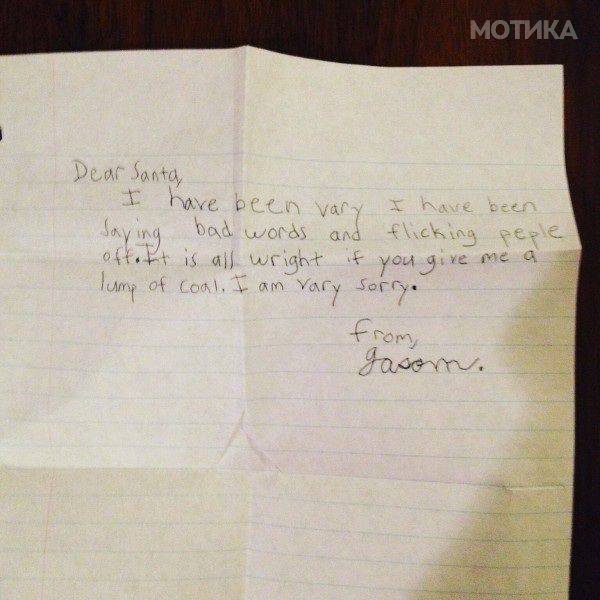 МОТИКА
Dear Santa,
I have been vary I have been
saying bad words and flicking peple
off. It is all wright if you give me a
lump of coal. I am vary sorry.
from,
Jasom.